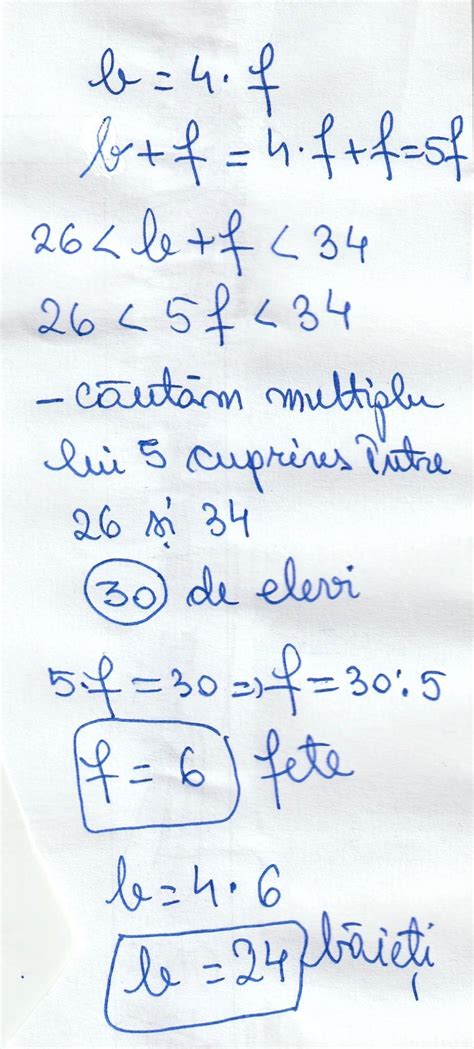 b = 4 · f
b + f = 4 · f + f = 5f
26 < b + f < 34
26 < 5f < 34
- căutăm multiplu
lui 5 cuprins între
26 și 34
30 de elevi
5·f = 30 => f = 30 : 5
f = 6 fete
b = 4 · 6
b = 24 băieți